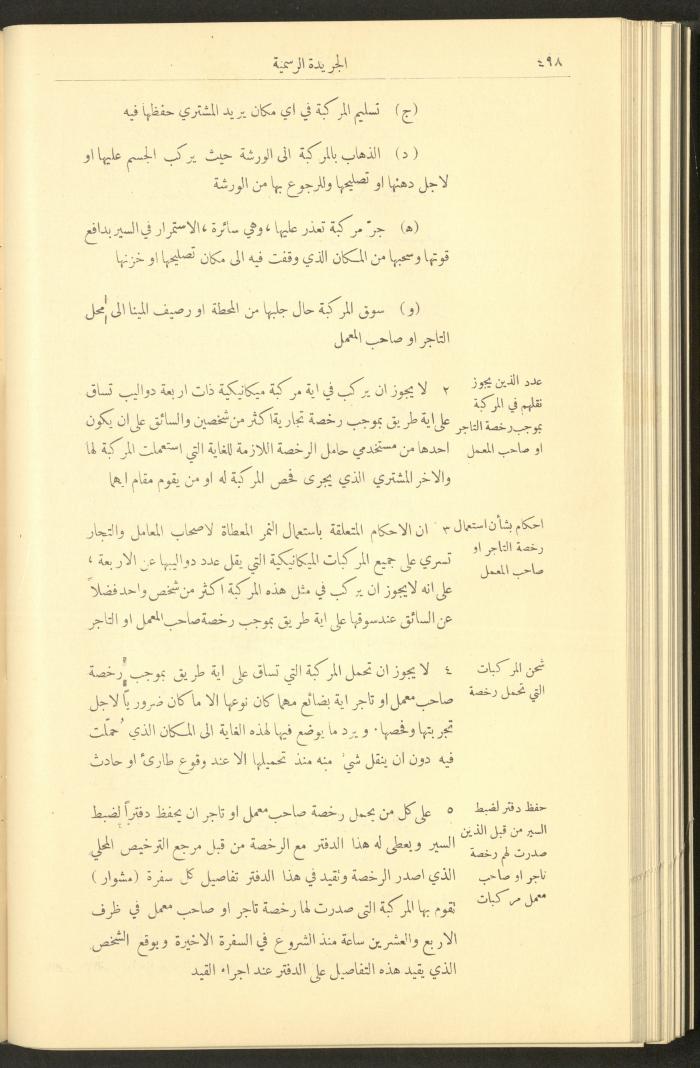 ٤٩٨
الجريدة الرسمية
(ج) تسليم المركبة في اي مكان يريد المشتري حفظها فيه
(د) الذهاب بالمركبة الى الورشة حيث يركب الجسم عليها او
لاجل دهنها او تصليحها وللرجوع بها من الورشة
(ه) جرّ مركبة تعذر عليها ، وهي سائرة ، الاستمرار في السير بدافع
قوتها وسحبها من المكان الذي وقفت فيه الى مكان تصليحها او خزنها
(و) سوق المركبة حال جلبها من المحطة او رصيف المينا الى محل
التاجر او صاحب المعمل
عدد الذين يجوز
نقلهم في المركبة
بموجب رخصة التاجر
او صاحب المعمل
٢ لا يجوز ان يركب في اية مركبة ميكانيكية ذات اربعة دواليب تساق
على اية طريق بموجب رخصة تجارية اكثر من شخصين والسائق على ان يكون
احدها من مستخدمي حامل الرخصة اللازمة للغاية التي استعملت المركبة لها
والاخر المشتري الذي يجرى فحص المركبة له او من يقوم مقام ايهما
احكام بشأن استعمال
رخصة التاجر او
صاحب المعمل
٣ ان الاحكام المتعلقة باستعمال النمر المعطاة لاصحاب المعامل والتجار
تسري على جميع المركبات الميكانيكية التي يقل عدد دواليبها عن الاربعة ،
على انه لا يجوز ان يركب في مثل هذه المركبة اكثر من شخص واحد فضلاً
عن السائق عند سوقها على اية طريق بموجب رخصة صاحب المعمل او التاجر
شحن المركبات
التي تحمل رخصة
٤ لا يجوز ان تحمل المركبة التي تساق على اية طريق بموجب رخصة
صاحب معمل او تاجر اية بضائع مهما كان نوعها الا ما كان ضرورياً لاجل
تجربتها وفحصها . ويرد ما يوضع فيها لهذه الغاية الى المكان الذي حُمّلت
فيه دون ان ينقل شيء منه منذ تحميلها الا عند وقوع طارئ او حادث
حفظ دفتر لضبط
السير من قبل الذين
صدرت لهم رخصة
تاجر او صاحب
معمل مركبات
٥ على كل من يحمل رخصة صاحب معمل او تاجر ان يحفظ دفتراً لضبط
السير ويعطى له هذا الدفتر مع الرخصة من قبل مرجع الترخيص المحلي
الذي اصدر الرخصة وتقيد في هذا الدفتر تفاصيل كل سفرة (مشوار)
تقوم بها المركبة التي صدرت لها رخصة تاجر او صاحب معمل في ظرف
الاربع والعشرين ساعة منذ الشروع في السفرة الاخيرة ويوقع الشخص
الذي يقيد هذه التفاصيل على الدفتر عند اجراء القيد